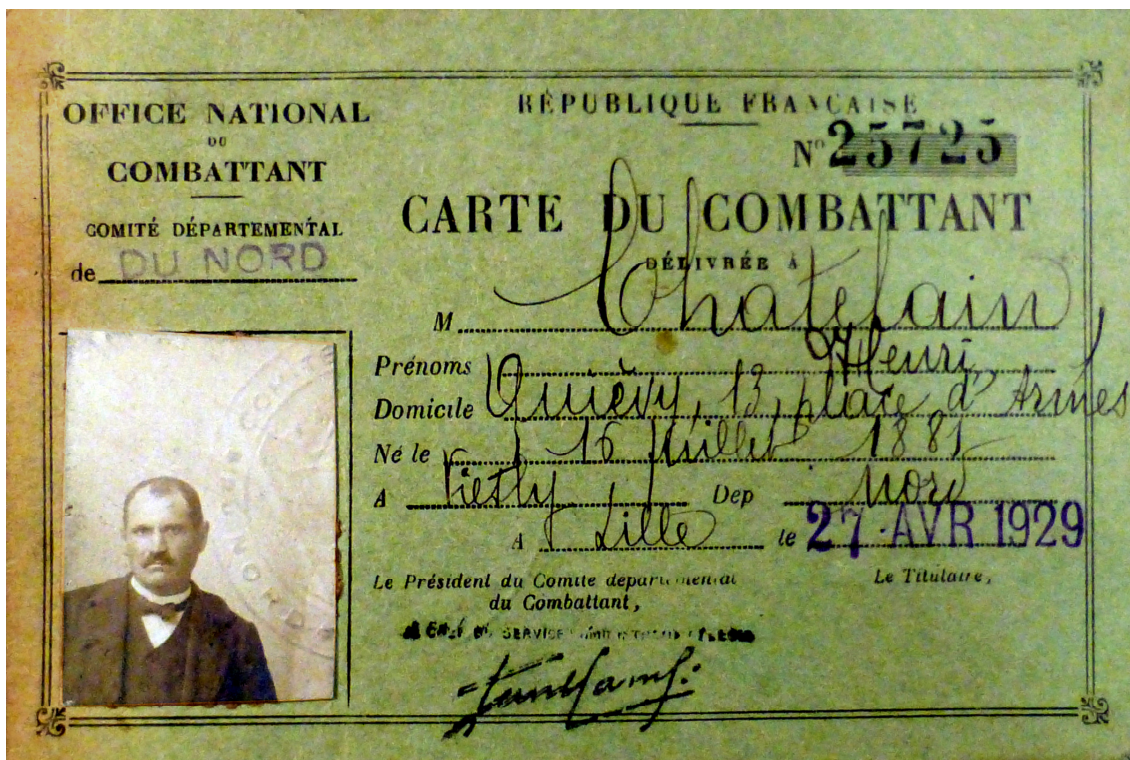 OFFICE NATIONAL
DU
COMBATTANT
COMITÉ DÉPARTEMENTAL
de DU NORD
RÉPUBLIQUE FRANÇAISE
N° 25725
CARTE DU COMBATTANT
DÉLIVRÉE A
M Chatelain
Prénoms Henri
Domicile Quiévy, 13, place d'Armes
Né le 16 Juillet 1881
A Viesly Dep Nord
A Lille le 27 AVR 1929
Le Président du Comité départemental
du Combattant,
Le Titulaire,